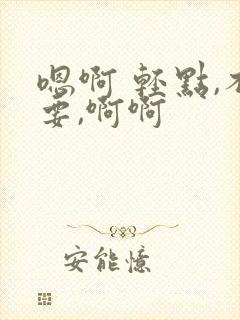 嗯啊 輕點,不
要,啊啊
安能憶